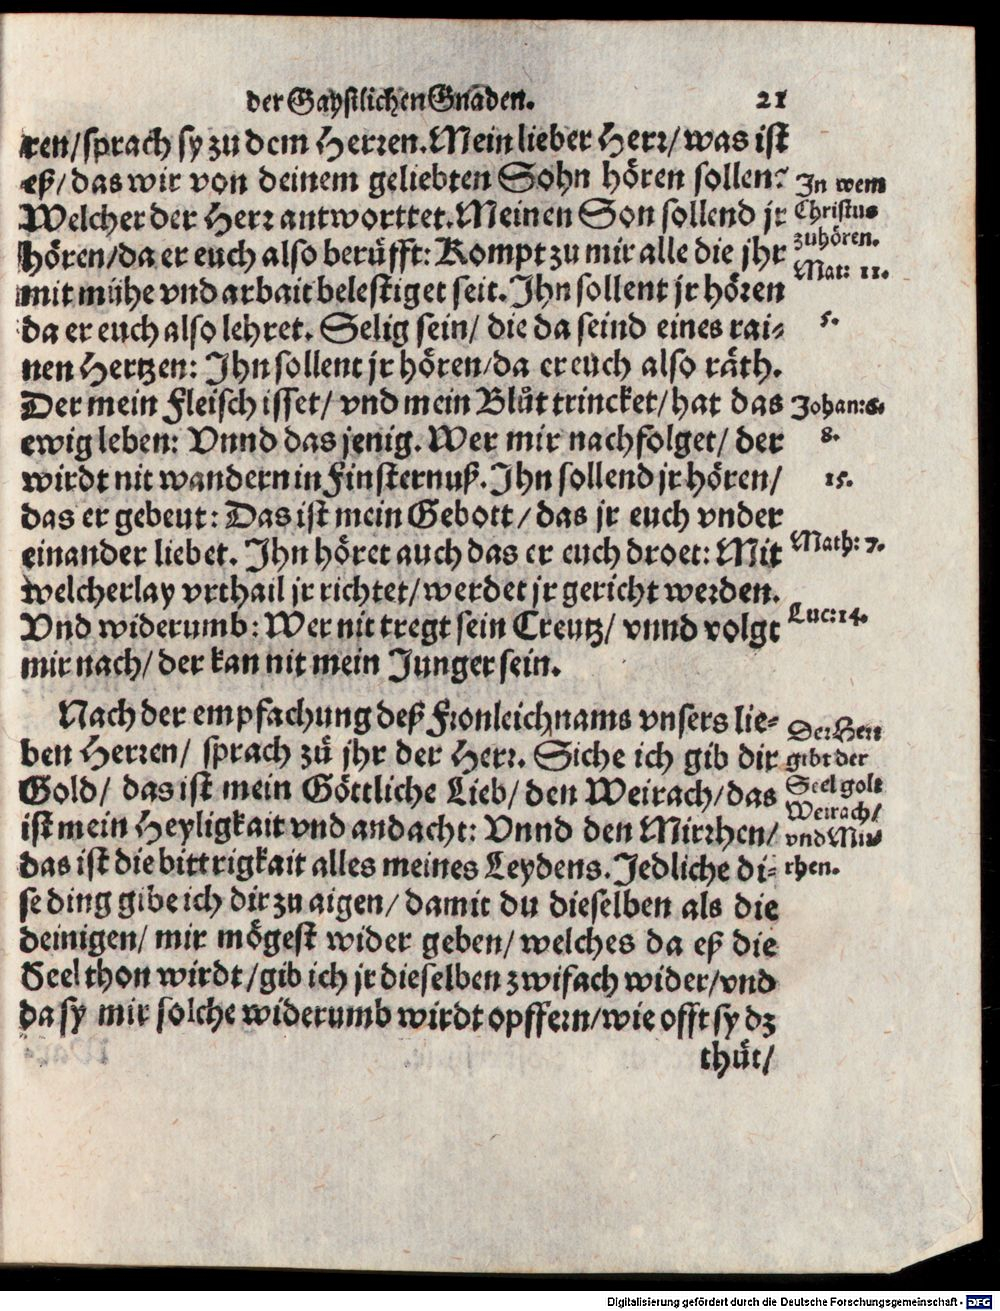 der Gaystlichen Gnaden. 21
ren/ sprach sy zu dem Herren. Mein lieber Herr/ was ist
eß/ das wir von deinem geliebten Sohn hören sollen?
Welcher der Herr antworttet. Meinen Son sollend jr
hören/ da er euch also berüfft: Kompt zu mir alle die jhr
mit mühe vnd arbait belestiget seit. Ihn sollent jr hören
da er euch also lehret. Selig sein/ die da seind eines rai-
nen Hertzen: Ihn sollent jr hören/ da er euch also räth.
Der mein Fleisch isset/ vnd mein Blůt trincket/ hat das
ewig leben: Vnnd das jenig. Wer mir nachfolget/ der
wirdt nit wandern in Finsternuß. Ihn sollend jr hören/
das er gebeut: Das ist mein Gebott/ das jr euch vnder
einander liebet. Ihn höret auch das er euch droet: Mit
welcherlay vrthail jr richtet/ werdet jr gericht werden.
Vnd widerumb: Wer nit tregt sein Creutz/ vnnd volgt
mir nach/ der kan nit mein Junger sein.
Nach der empfachung deß Fronleichnams vnsers lie-
ben Herren/ sprach zů jhr der Herr. Siche ich gib dir
Gold/ das ist mein Göttliche Lieb/ den Weirach/ das
ist mein Heyligkait vnd andacht: Vnnd den Mirrhen/
das ist die bittrigkait alles meines Leydens. Jedliche di-
se ding gibe ich dir zu aigen/ damit du dieselben als die
deinigen/ mir mögest wider geben/ welches da eß die
Seel thon wirdt/ gib ich jr dieselben zwifach wider/ vnd
da sy mir solche widerumb wirdt opffern/ wie offt sy dz
thůt/
In wem
Christus
zuhören.
Mat: 11.
5.
Johan: 6.
8.
15.
Math: 7.
Luc: 14.
Der Herr
gibt der
Seel golt
Weirach/
vnd Mir-
rhen.
Digitalisierung gefördert durch die Deutsche Forschungsgemeinschaft - DFG